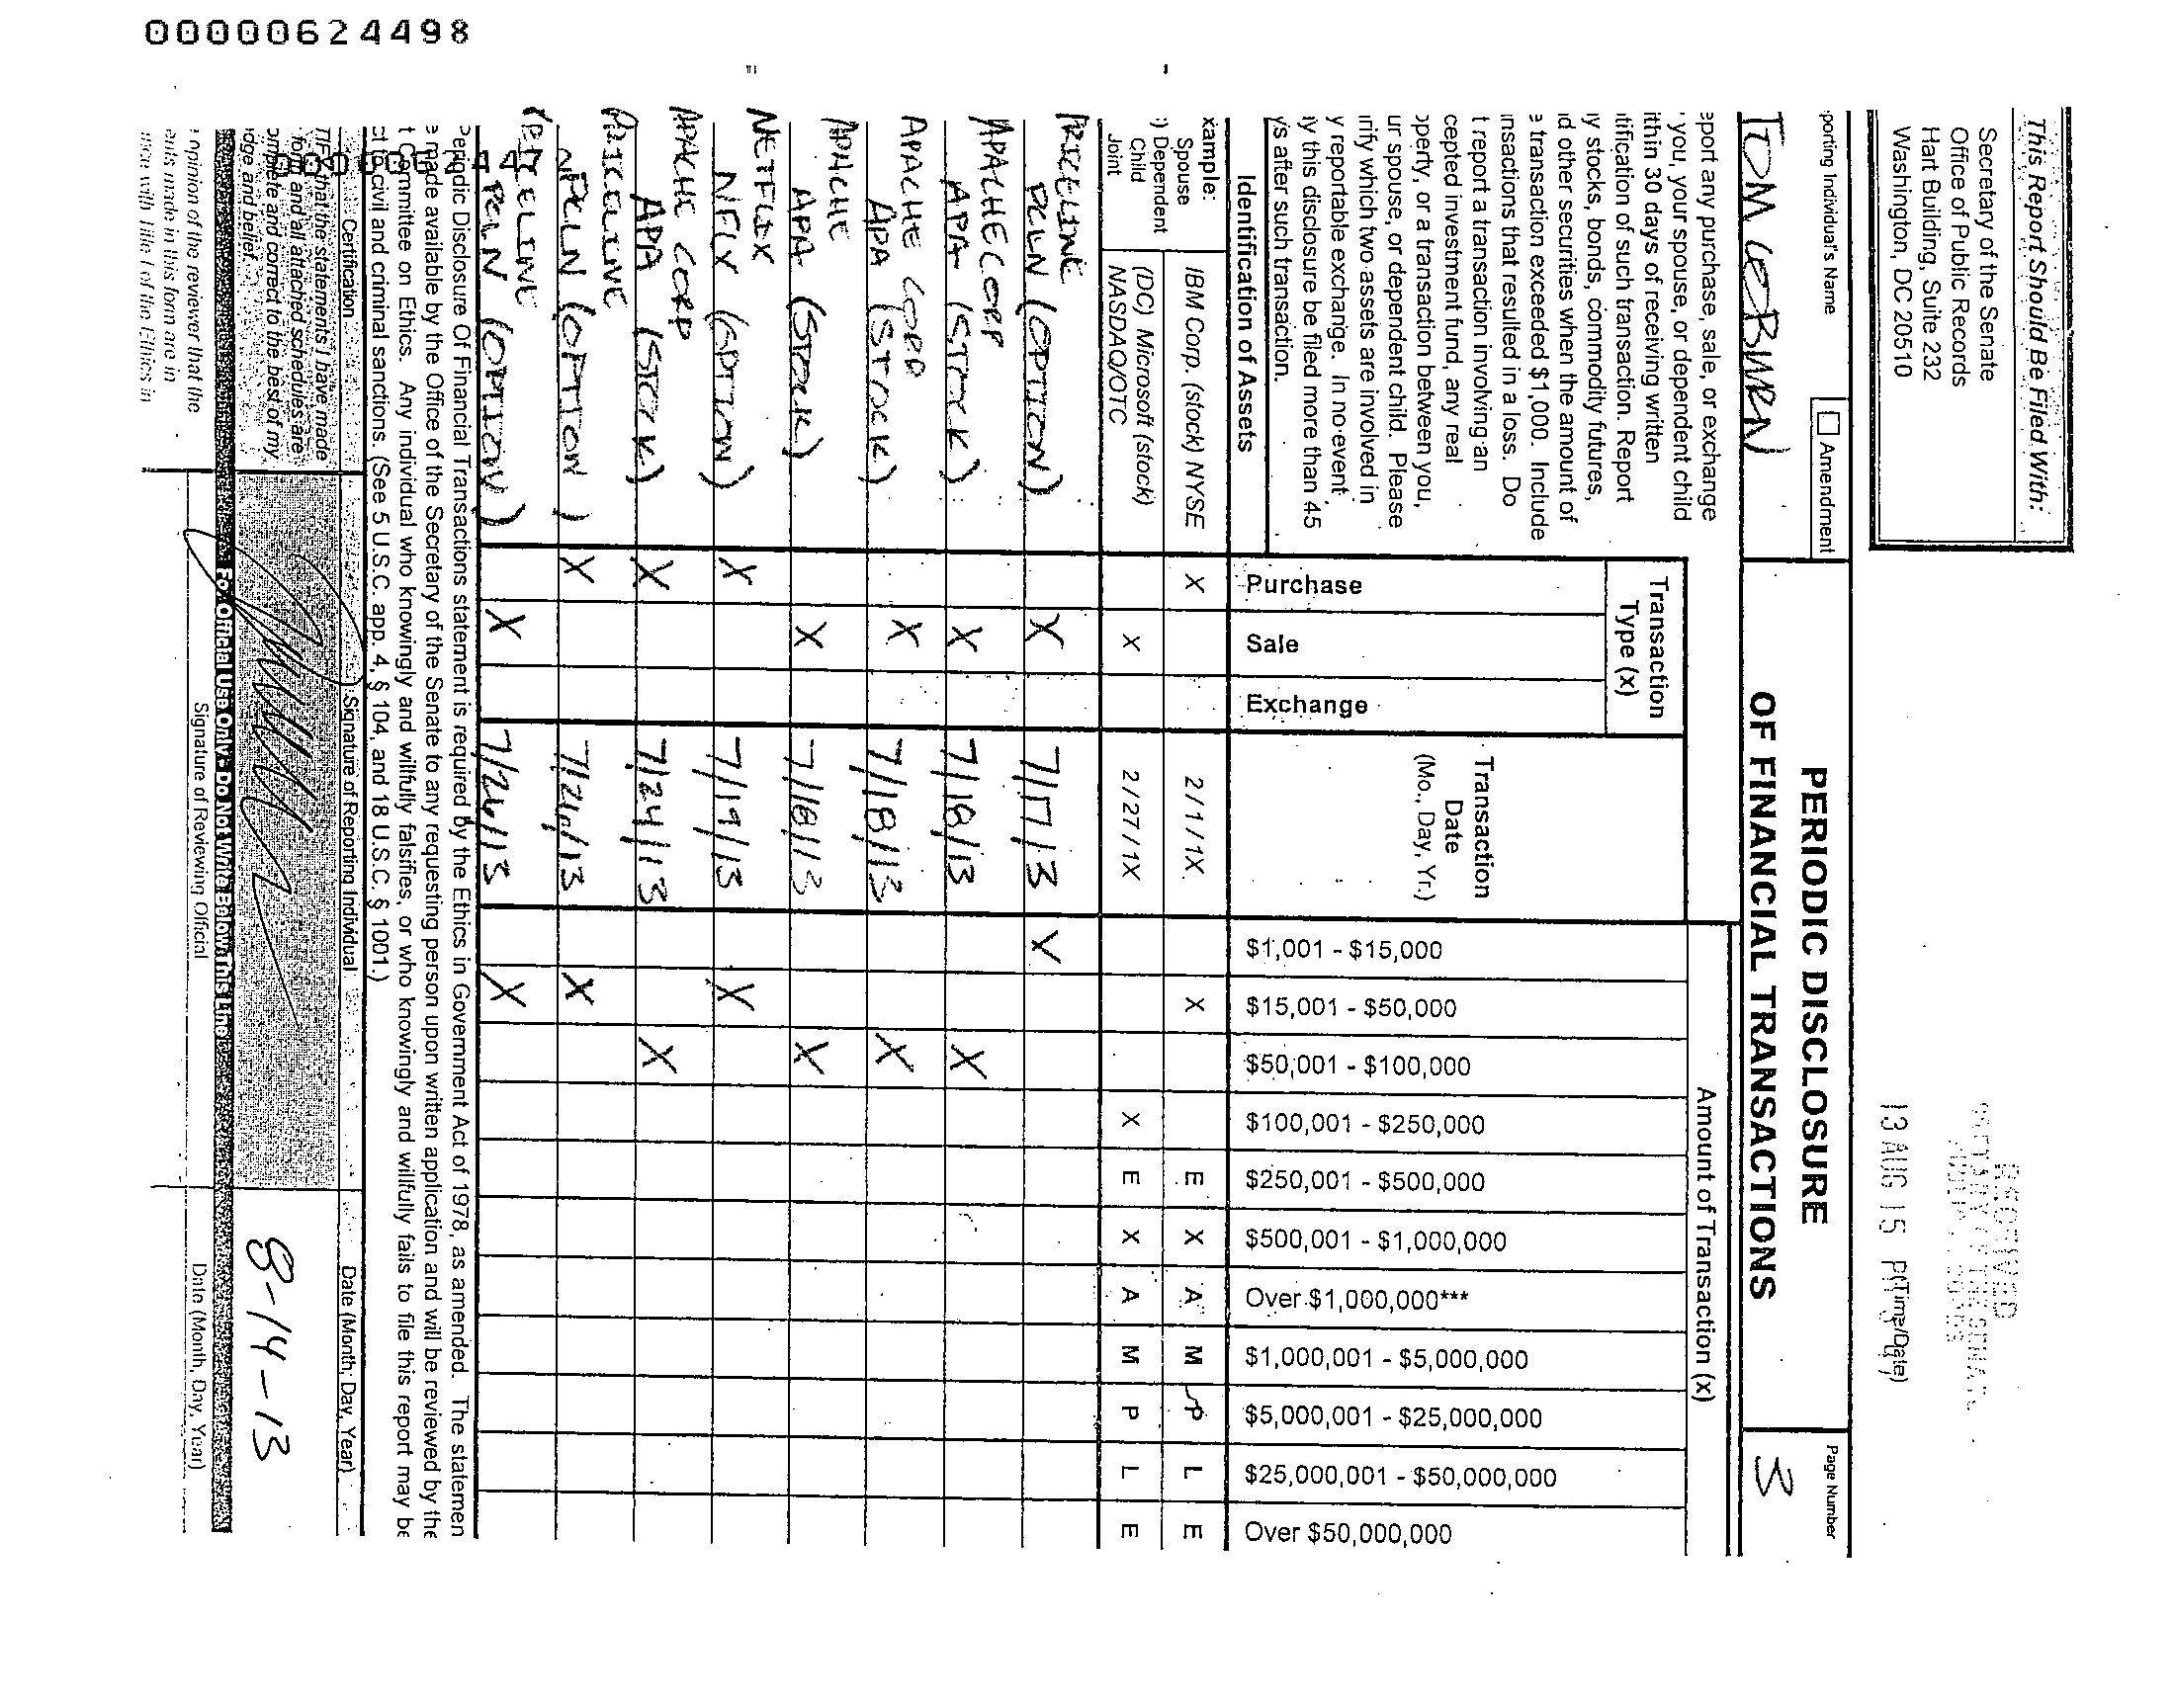 00000624498
This Report Should Be Filed With:
Secretary of the Senate
Office of Public Records
Hart Building, Suite 232
Washington, DC 20510
13 AUG 15
(Time/Date)
porting Individual's Name
Amendment
TOM COBURN
PERIODIC DISCLOSURE
OF FINANCIAL TRANSACTIONS
Page Number
3
eport any purchase, sale, or exchange
you, your spouse, or dependent child
ithin 30 days of receiving written
itification of such transaction. Report
iy stocks, bonds, commodity futures,
id other securities when the amount of
e transaction exceeded $1,000. Include
insactions that resulted in a loss. Do
t report a transaction involving an
cepted investment fund, any real
operty, or a transaction between you,
ur spouse, or dependent child. Please
irify which two assets are involved in
y reportable exchange. In no event
iy this disclosure be filed more than 45
ys after such transaction.
Identification of Assets
Transaction
Type (x)
Purchase
Sale
Exchange
Transaction
Date
(Mo., Day, Yr.)
Amount of Transaction (x)
$1,001 - $15,000
$15,001 - $50,000
$50,001 - $100,000
$100,001 - $250,000
$250,001 - $500,000
$500,001 - $1,000,000
Over $1,000,000***
$1,000,001 - $5,000,000
$5,000,001 - $25,000,000
$25,000,001 - $50,000,000
Over $50,000,000
xample: Spouse IBM Corp. (stock) NYSE X 2/1/1X X E X A M P L E
:) Dependent Child Joint (DC) Microsoft (stock) NASDAQ/OTC X 2/27/1X X E X A M P L E
PRICELINE
PCLN (OPTION) X 7/17/13 X
APACHE CORP
APA (STOCK) X 7/18/13 X
APACHE CORP
APA (STOCK) X 7/18/13 X
APACHE
APA (STOCK) X 7/18/13 X
NETFLIX
NFLX (OPTION) X 7/19/13 X
APACHE CORP
APA (STOCK) X 7/24/13 X
PRICELINE
PCLN (OPTION) X 7/26/13 X
PRICELINE
PCLN (OPTION) X 7/26/13 X
Periodic Disclosure Of Financial Transactions statement is required by the Ethics in Government Act of 1978, as amended. The statemen
e made available by the Office of the Secretary of the Senate to any requesting person upon written application and will be reviewed by the
t Committee on Ethics. Any individual who knowingly and willfully falsifies, or who knowingly and willfully fails to file this report may be
ct to civil and criminal sanctions. (See 5 U.S.C. app. 4, § 104, and 18 U.S.C. § 1001.)
Certification
Signature of Reporting Individual
Date (Month, Day, Year)
that the statements I have made
form and all attached schedules are
omplete and correct to the best of my
dge and belief.
8-14-13
For Official Use Only. Do Not Write Below This Line
opinion of the reviewer that the
ents made in this form are in
with Title I of the Ethics in
Signature of Reviewing Official
Date (Month, Day, Year)